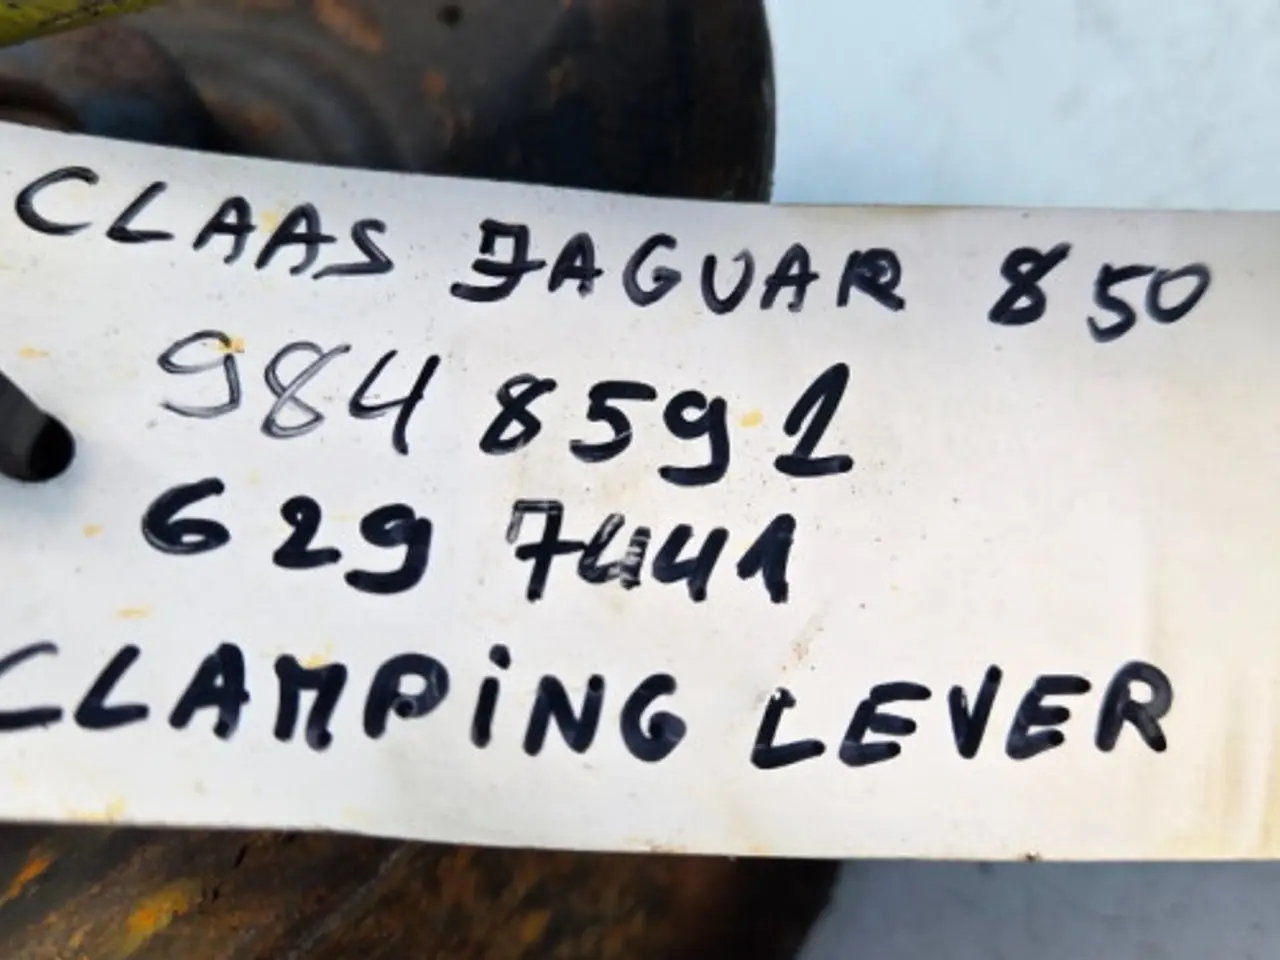 CLAAS JAGUAR 850
984 8591
629 7441
CLAMPiNG LEVER